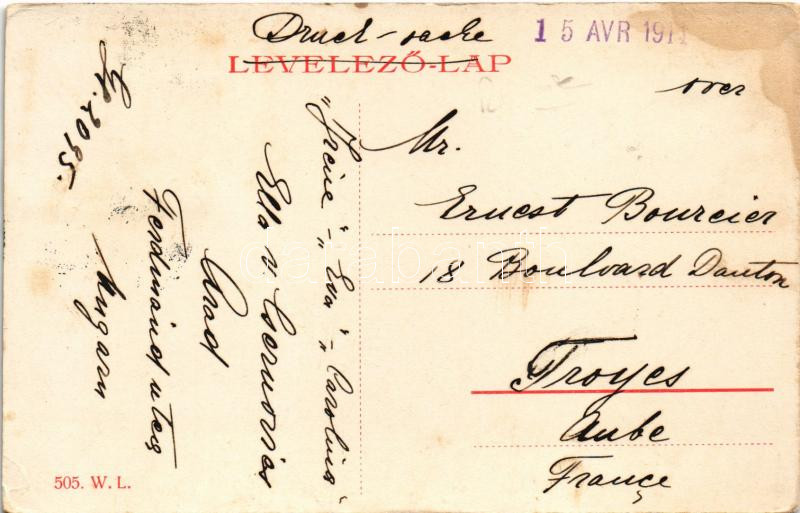 Druck-sache
LEVELEZŐ-LAP
15 AVR 191
over
Mr.
Ernest Bourcier
18 Boulvard Danton
Troyes
Aube
France
„Irene" - „Eva" - „Carolina"
Ella v Csernovics
Arad
Ferdinand utca
Ungarn
2095.
505. W. L.